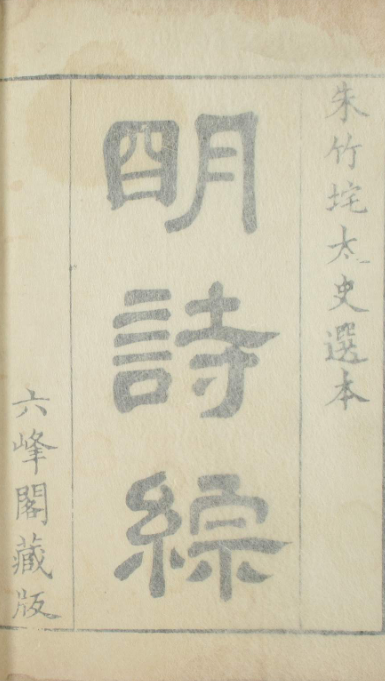 朱竹垞太史選本
明詩綜
六峰閣藏版